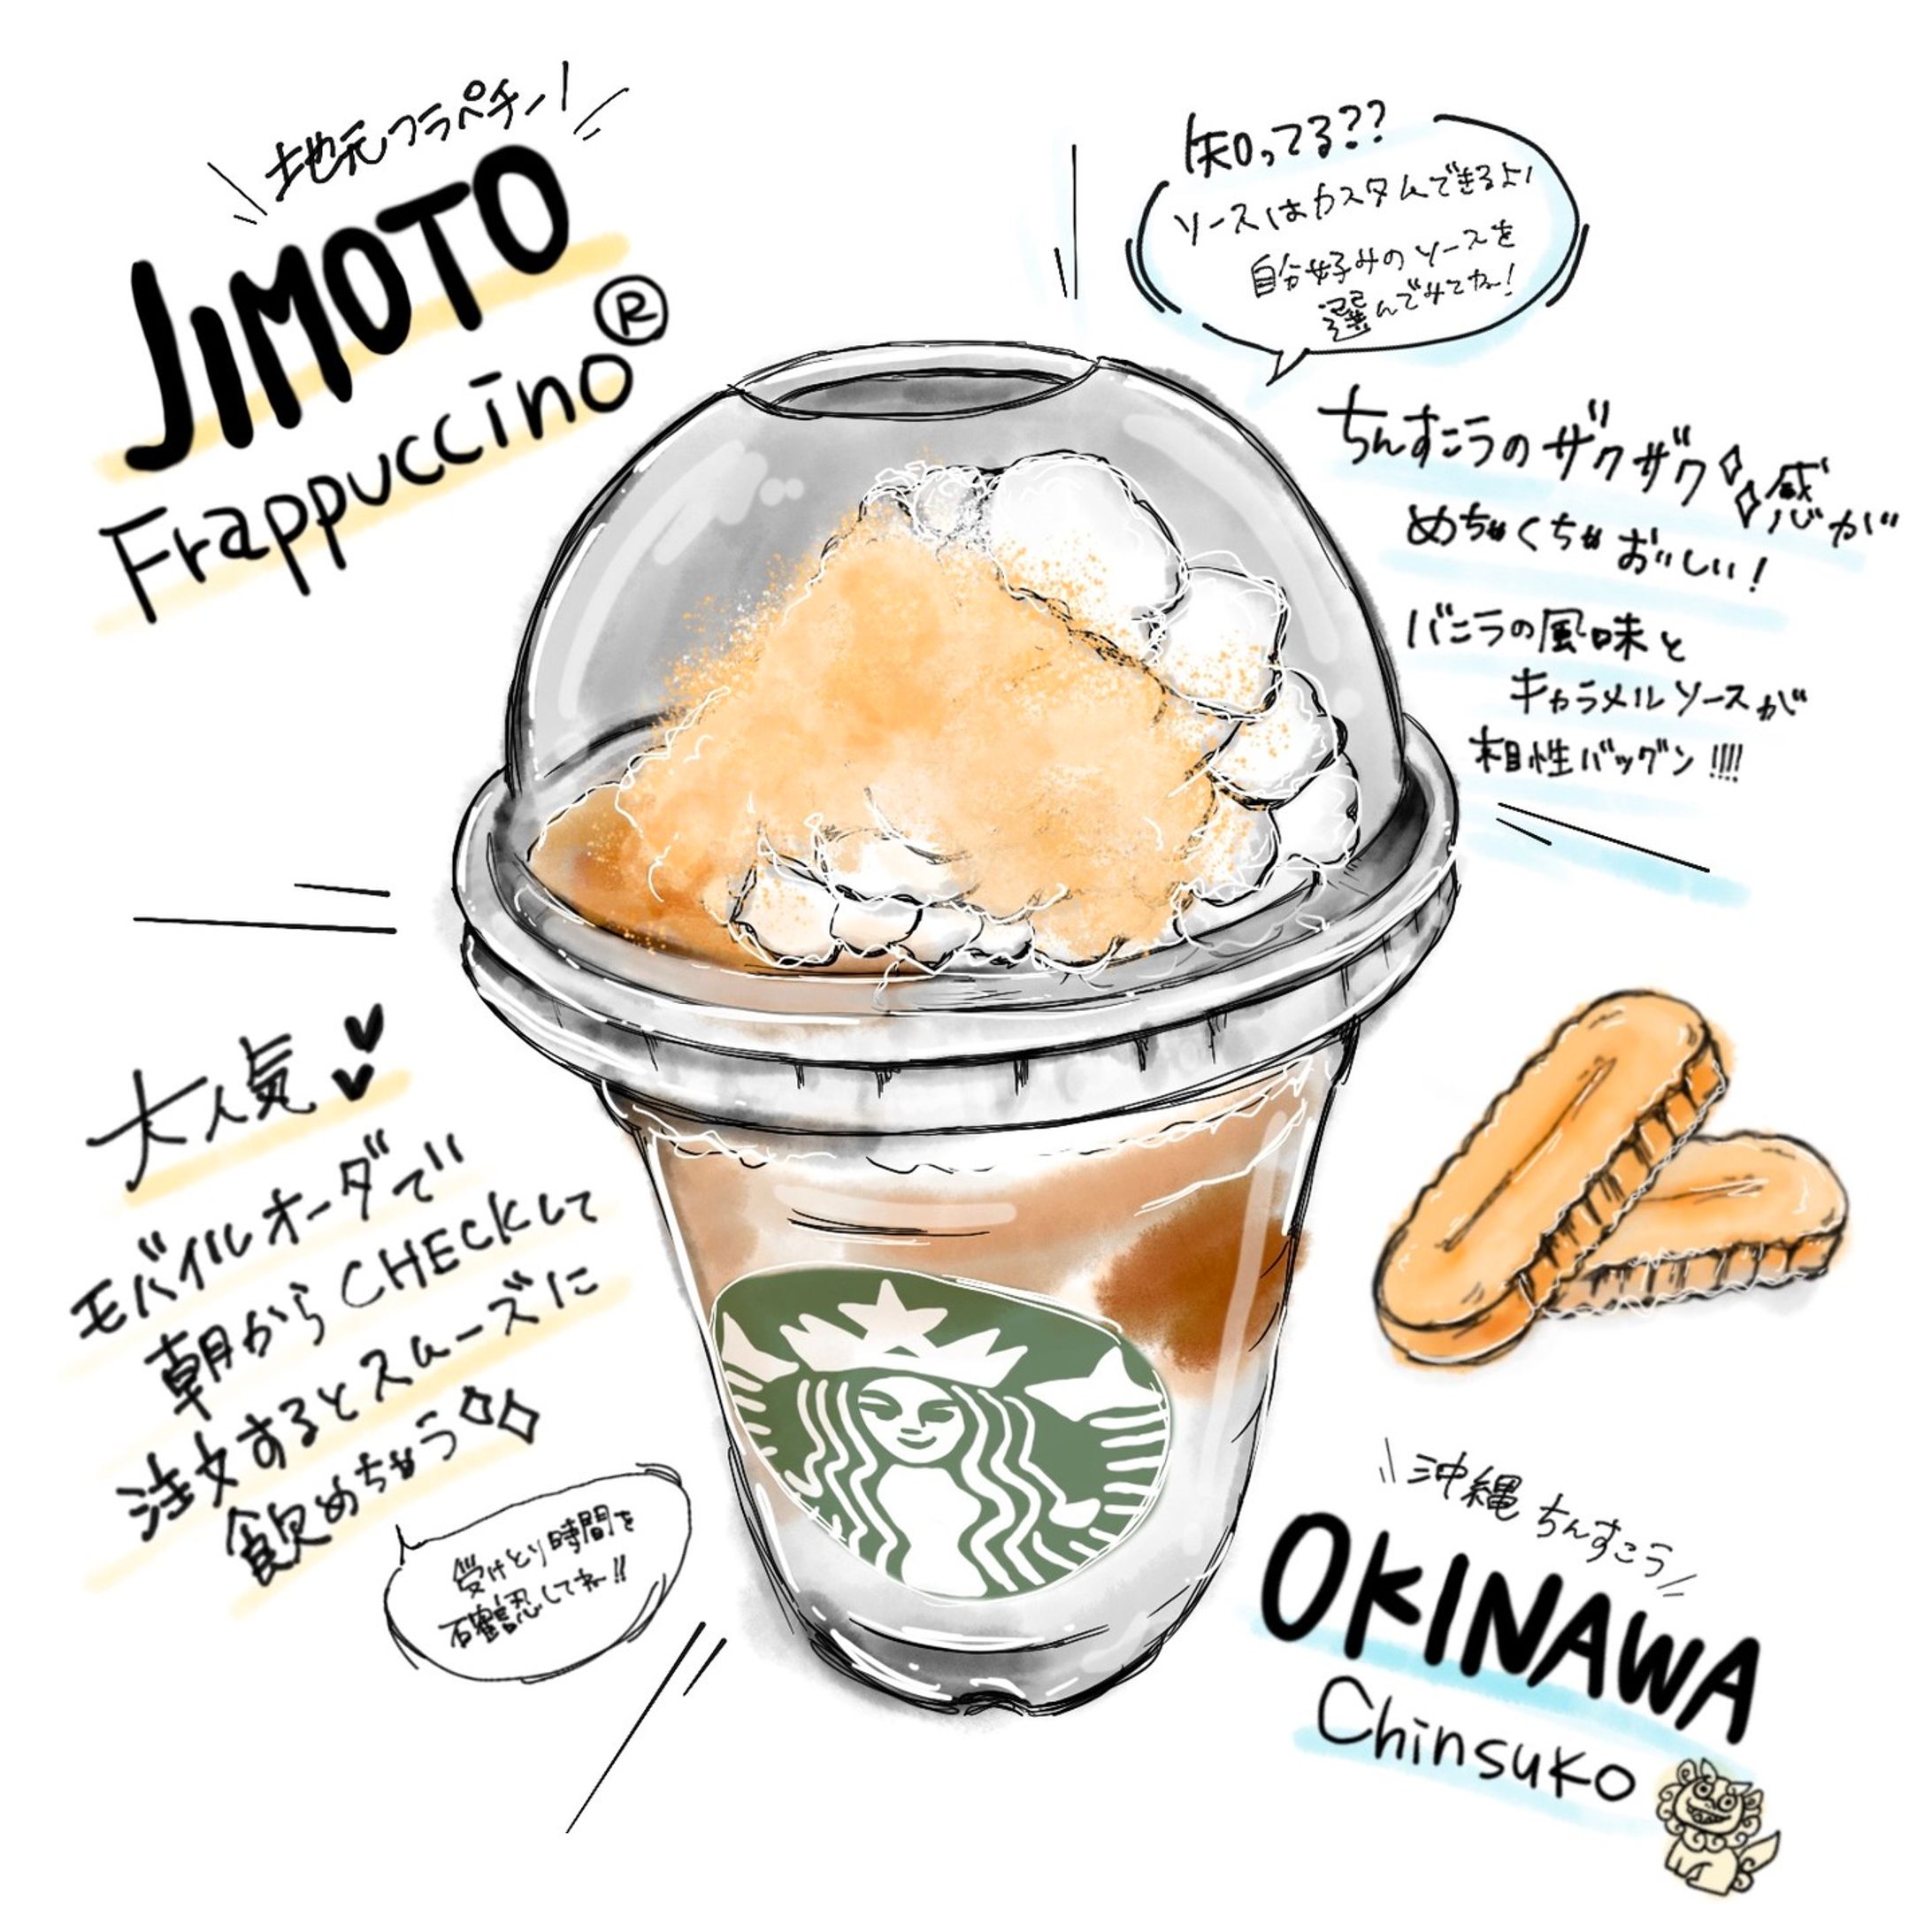 地元フラペチーノ
JIMOTO
Frappuccino®
知ってる??
ソースはカスタムできるよ!
自分好みのソースを
選んでみてねー!
ちんすこうのザクザク感が
めちゃくちゃおいしい!
バニラの風味と
キャラメルソースが
相性バッグン!!!!
大人気
モバイルオーダで
朝からCHECKして
注文するとスムーズに
飲めちゃう
受けとり時間を
確認してねー!!
沖縄 ちんすこう
OKINAWA
Chinsuko